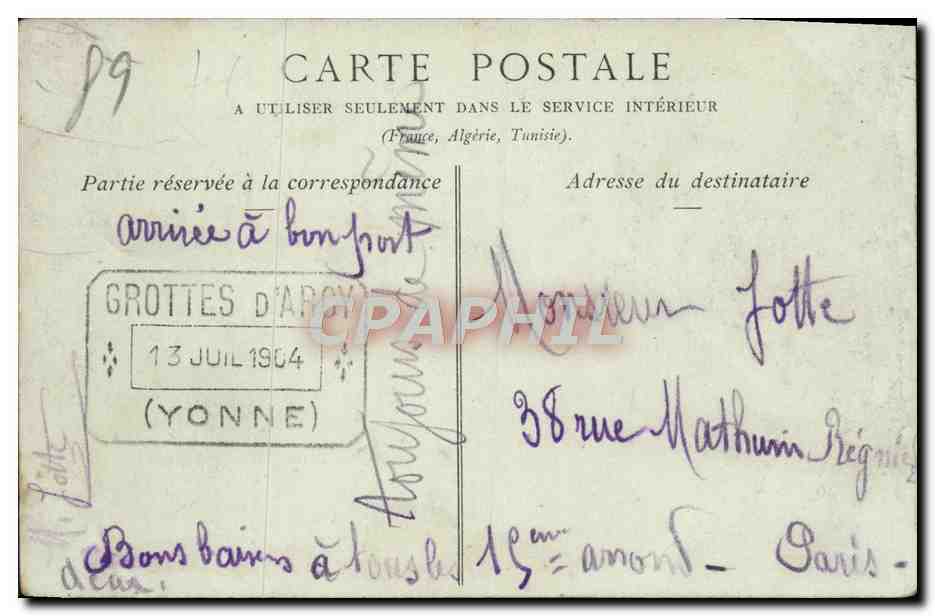 89
CARTE POSTALE
A UTILISER SEULEMENT DANS LE SERVICE INTÉRIEUR
(France, Algérie, Tunisie).
Partie réservée à la correspondance
Adresse du destinataire
arrivée à bon port
GROTTES D'ARCY
13 JUIL 1904
(YONNE)
Toujours de même
Bons baisers à tous les
deux.
Jotte
Monsieur Jotte
38 rue Mathurin Régnier
15eme arrond - Paris -
CPAPHIL